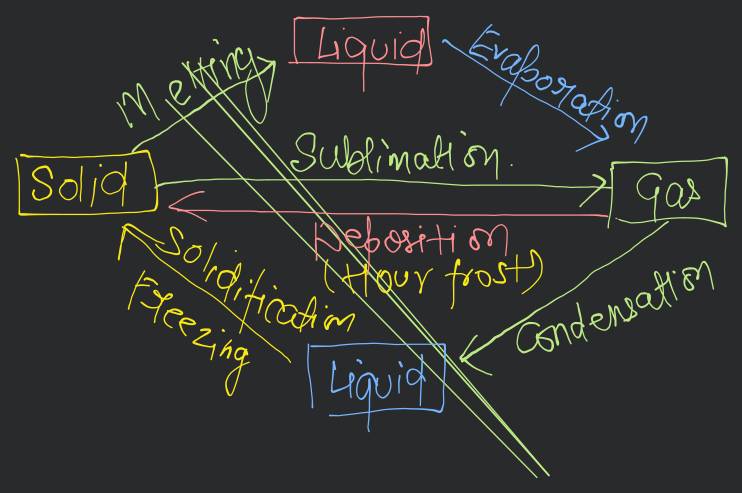 Liquid
Evaporation
Melting
Sublimation.
Solid
Gas
Deposition
(Hour frost)
Solidification
Freezing
Condensation
Liquid